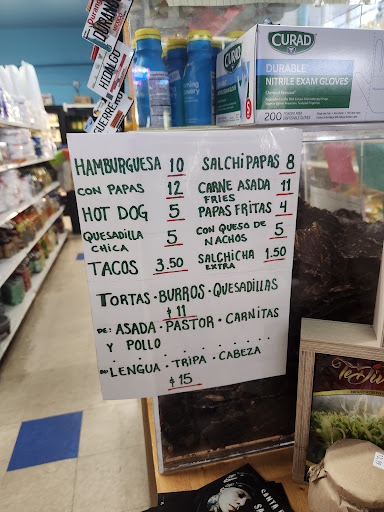 DURANGO
HIDALGO
GUERRERO
CURAD
CURAD
DURABLE
NITRILE EXAM GLOVES
200
HAMBURGUESA 10
CON PAPAS 12
HOT DOG 5
QUESADILLA CHICA 5
TACOS 3.50
SALCHIPAPAS 8
CARNE ASADA FRIES 11
PAPAS FRITAS 4
CON QUESO DE NACHOS 5
SALCHICHA EXTRA 1.50
TORTAS · BURROS · QUESADILLAS
$11
DE: ASADA · PASTOR · CARNITAS
Y POLLO
LENGUA · TRIPA · CABEZA
$15
SANTA